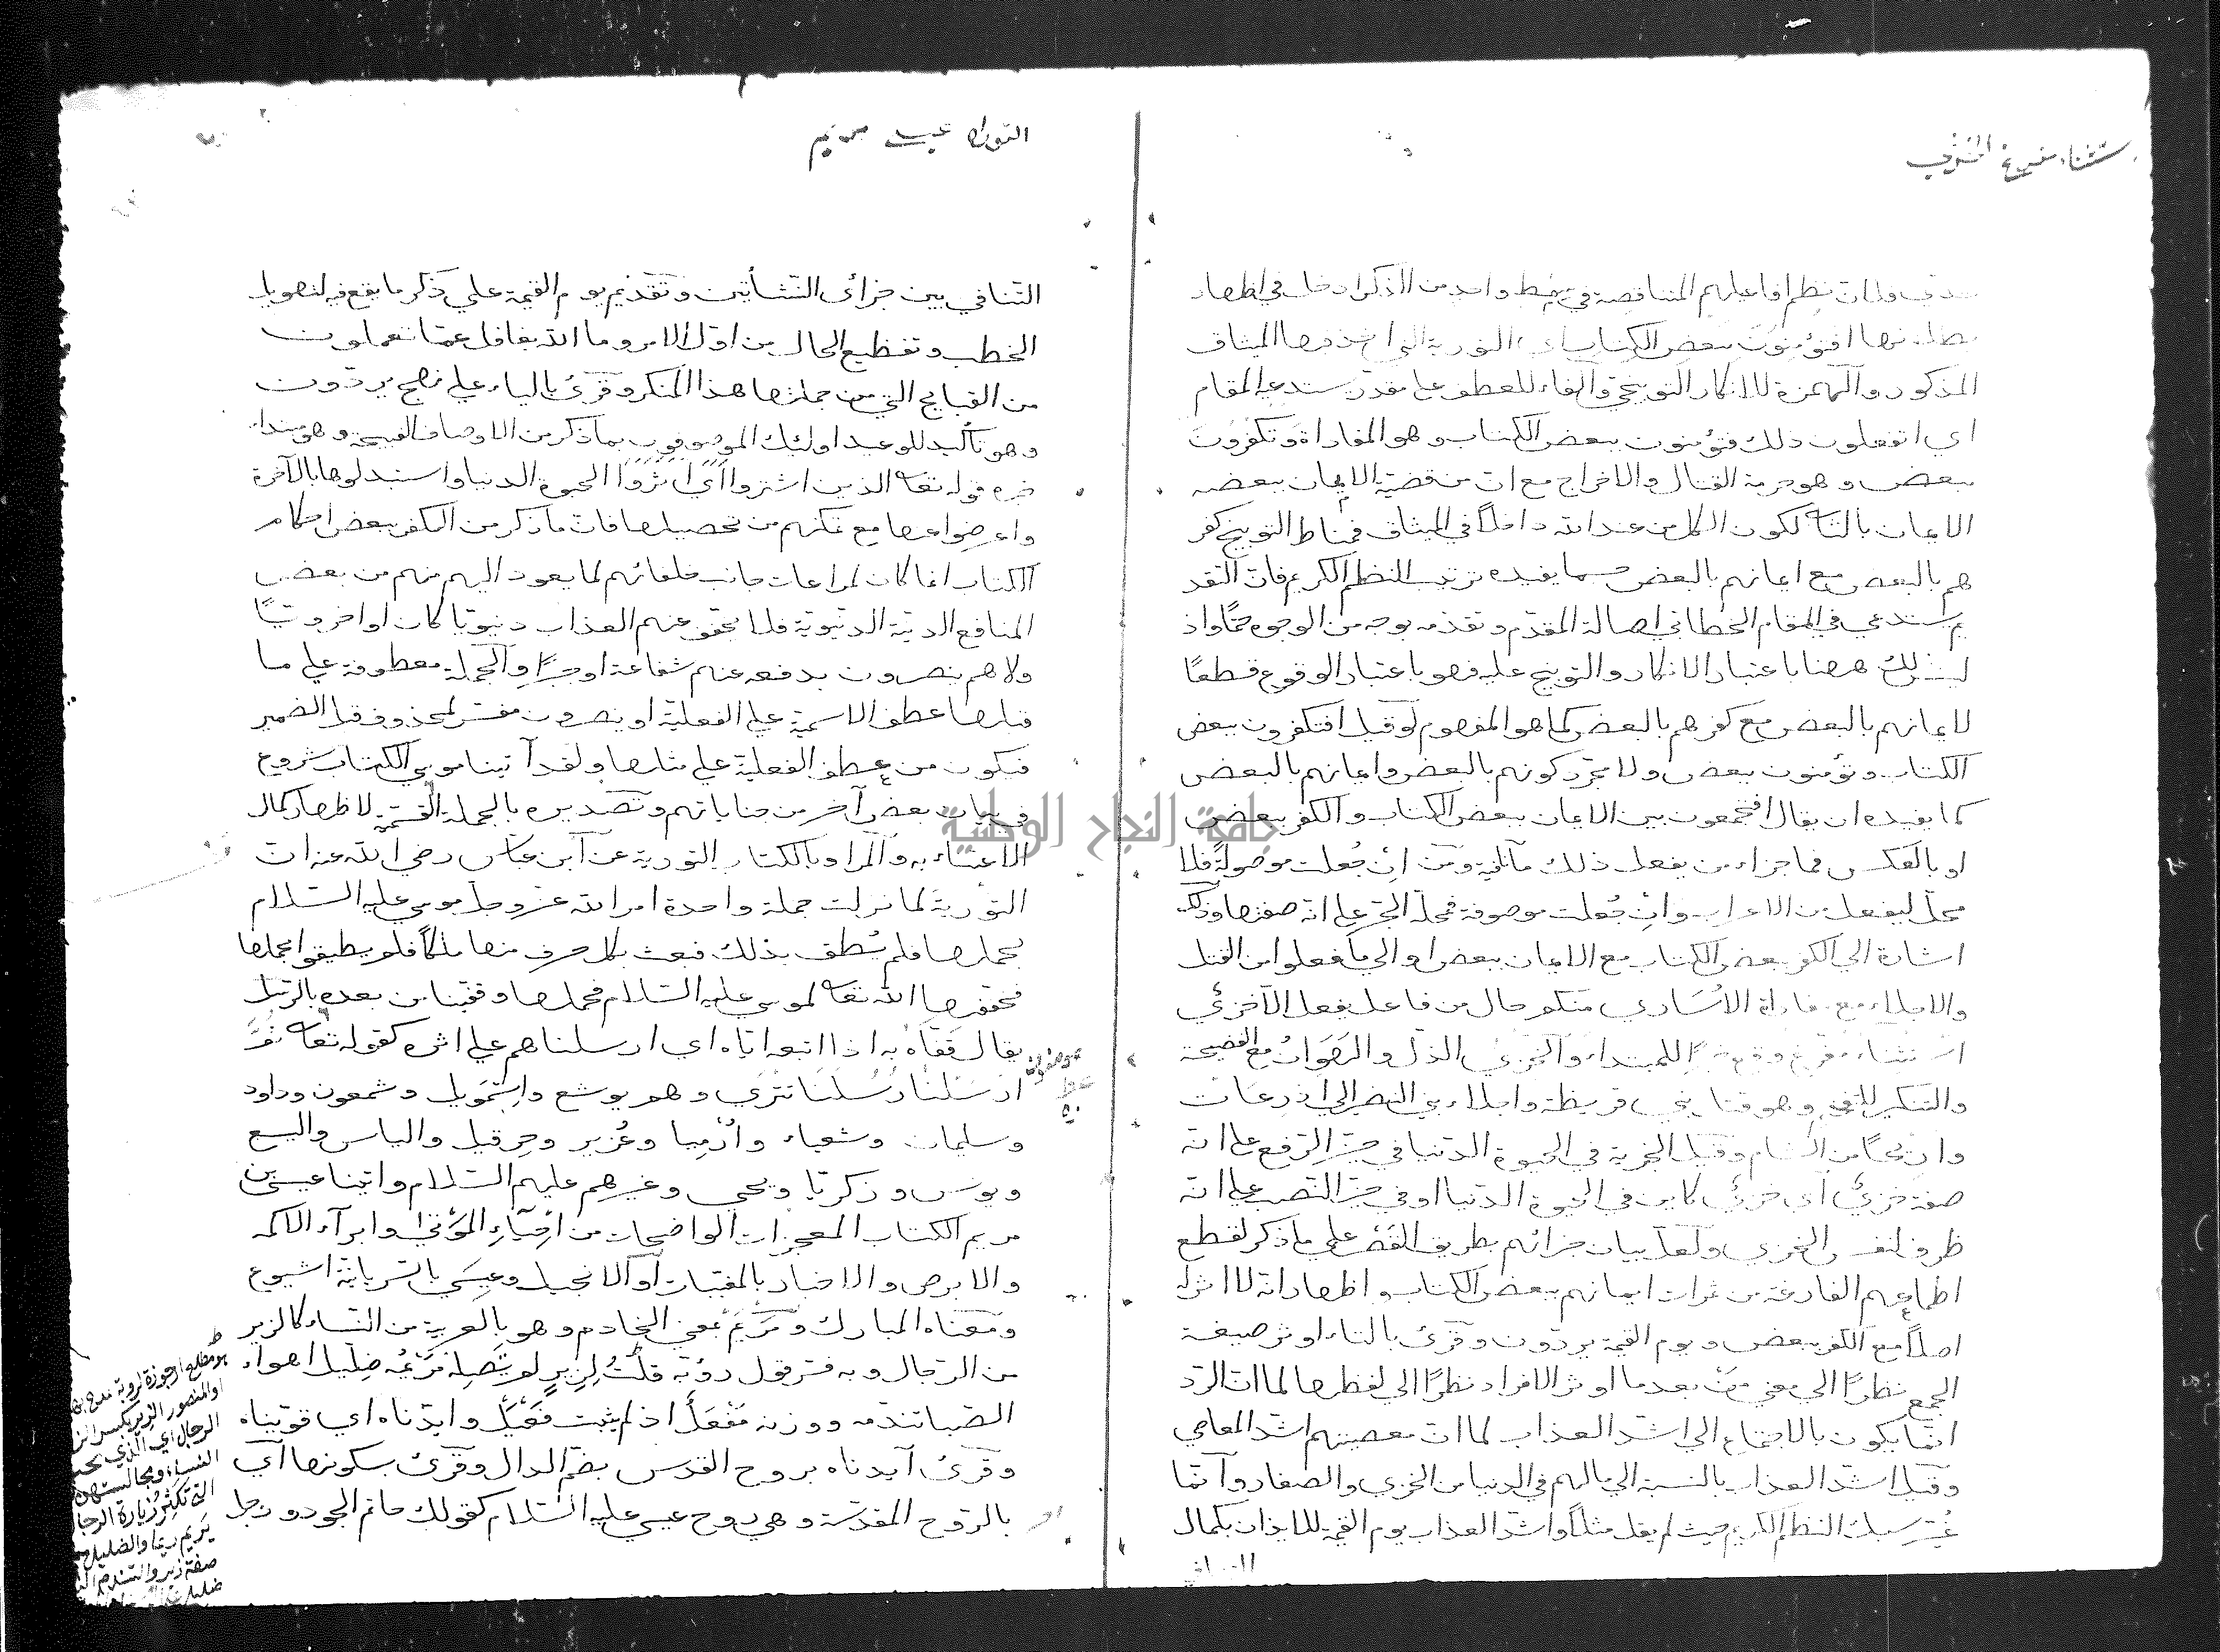 استثناء مفرغ الخزي
صدق ولما ان نظم افاعيلهم المتناقضة في نمط واحد من الذكر ادخل في اظهار
بطلانها افتؤمنون ببعض الكتاب اي التورية التي اخذ فيها الميثاق
المذكور والهمزة للانكار التوبيخي والفاء للعطف على مقدر يستدعيه المقام
اي اتفعلون ذلك فتؤمنون ببعض الكتاب وهو المفاداة وتكفرون
ببعض وهو حرمة القتال والاخراج مع ان من قضية الايمان ببعضه
الايمان بالباقي لكون الكل من عند الله داخلا في الميثاق فمناط التوبيخ كفر
هم بالبعض مع ايمانهم بالبعض حسبما يفيده ترتيب النظم الكريم فان التقد
يم يستدعي في المقام الخطابي اصالة المقدم وتقدمه بوجه من الوجوه حتما واذ
ليس ذلك ههنا باعتبار الانكار والتوبيخ عليه فهو باعتبار الوقوع قطعا
لا ايمانهم بالبعض مع كفرهم بالبعض كما هو المفهوم لو قيل افتكفرون ببعض
الكتاب وتؤمنون ببعض ولا مجرد كونهم بالبعض وايمانهم بالبعض
كما يفيده ان يقال افتجمعون بين الايمان ببعض الكتاب والكفر ببعض
او بالعكس فما جزاء من يفعل ذلك ما نافية ومن ان جعلت موصولة فلا
محل ليفعل من الاعراب وان جعلت موصوفة فمحله الجر على انه صفتها وذلك
اشارة الى الكفر ببعض الكتاب مع الايمان ببعض او الى ما فعلوا من القتل
والاجلاء مع مفاداة الاسارى منكم حال من فاعل يفعل الا خزي
استثناء مفرغ وقع خبرا للمبتداء والخزي الذل والهوان مع الفضيحة
والتنكير للتفخيم وهو قتل بني قريظة واجلاء بني النضير الى اذرعات
واريحا من الشام وقيل الجزية في الحيوة الدنيا في حيز الرفع على انه
صفة خزي اي خزي كاين في الحيوة الدنيا او في حيز النصب على انه
ظرف لنفس الخزي ولعل بيان جزائهم بطريق القصر على ما ذكر لقطع
اطماعهم الفارغة من ثمرات ايمانهم ببعض الكتاب واظهار انه لا اثر له
اصلا مع الكفر ببعض ويوم القيمة يردون وقرئ بالتاء اوثر صيغة
الجمع نظرا الى معنى من بعد ما اوثر الافراد نظرا الى لفظها لما ان الرد
انما يكون بالاجتماع الى اشد العذاب لما ان معصيتهم اشد المعاصي
وقيل اشد العذاب بالنسبة الى مالهم في الدنيا من الخزي والصغار وانما
غير سبك النظم الكريم حيث لم يقل مثلا واشد العذاب يوم القيمة للايذان بكمال
التورية عيسى مريم
التنافي بين جزائ النشأتين وتقديم يوم القيمة على ذكر ما يقع فيه لتهويل
الخطب وتفظيع الحال من اول الامر وما الله بغافل عما تعملون
من القبايح التي من جملتها هذا المنكر وقرئ بالياء على نهج يردون
وهو تأكيد للوعيد اولئك الموصوفون بما ذكر من الاوصاف القبيحة وهو مبتداء
خبره قوله تعالى الذين اشتروا اي اثروا الحيوة الدنيا واستبدلوها بالآخرة
واعرضوا عنها مع تمكنهم من تحصيلها فان ما ذكر من الكفر ببعض احكام
الكتاب انما كان لمراعات جانب حلفائهم لما يعود اليهم منهم من بعض
المنافع الدنية الدنيوية فلا يخفف عنهم العذاب دنيويا كان او اخرويا
ولا هم ينصرون بدفعه عنهم شفاعة او جبرا والجملة معطوفة على ما
قبلها عطف الاسمية على الفعلية او ينصرون مفسر لمحذوف قبل الضمير
فيكون من عطف الفعلية على مثلها ولقد آتينا موسى الكتاب شروع
في بيان بعض آخر من جناياتهم وتصديره بالجملة القسمية لاظهار كمال
الاعتناء به والمراد بالكتاب التورية عن ابن عباس رضي الله عنه ان
التورية لما نزلت جملة واحدة امر الله عز وجل موسى عليه السلام
بحملها فلم يطق بذلك فبعث بكل حرف منها ملكا فلم يطيقوا بحملها
فخففها الله تعالى لموسى عليه السلام فحملها وقفينا من بعده بالرسل
يقال قفاه به اذا اتبعه اياه اي ارسلناهم على اثره كقوله تعالى ثم
ارسلنا رسلنا تترى وهم يوشع واشمويل وشمعون وداود
وسليمان وشعياء وارميا وعزير وحزقيل والياس واليسع
ويونس وزكريا ويحيى وغيرهم عليهم السلام واتينا عيسى بن
مريم الكتاب المعجزات الواضحات من احياء الموتى وابرآء الاكمه
والابرص والاخبار بالمغيبات او الانجيل وعيسى بالسريانية اشيوع
ومعناه المبارك ومريم بمعنى الخادم وهو بالعربية من النساء كالزير
من الرجال وبه فسر قول رؤبة قلت لزير لم تصله مريمه ضليل اهواء
الصبا تندمه ووزنه مفعل اذ لم يثبت فعيل وايدناه اي قويناه
وقرئ آيدناه بروح القدس بضم الدال وقرئ بسكونها اي
بالروح المقدسة وهي روح عيسى عليه السلام كقولك حاتم الجود ورجل
هو مطلع ارجوزة لروبة مدح بها
او المنصور الزير بكسر الز
الرجال اي الذي يحب
النساء ومجالستهن
التي تكثر زيارة الرجال
جامعة النجاح الوطنية